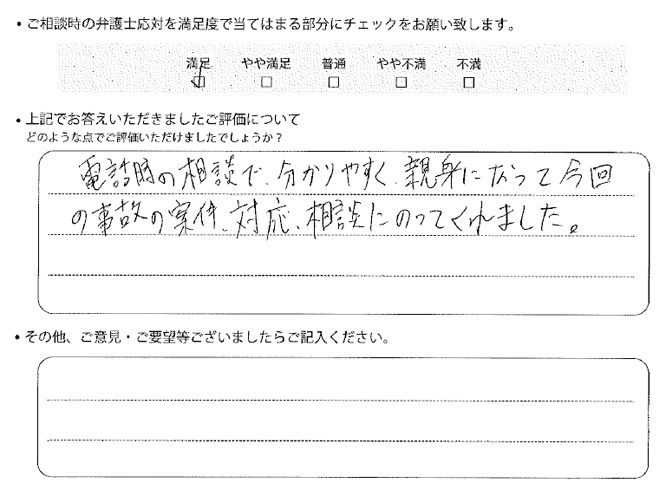 ・ご相談時の弁護士応対を満足度で当てはまる部分にチェックをお願い致します。
満足 やや満足 普通 やや不満 不満
☑ □ □ □ □
・上記でお答えいただきましたご評価について
どのような点でご評価いただけましたでしょうか？
電話時の相談で、分かりやすく、親身になって今回
の事故の案件、対応、相談にのってくれました。
・その他、ご意見・ご要望等ございましたらご記入ください。